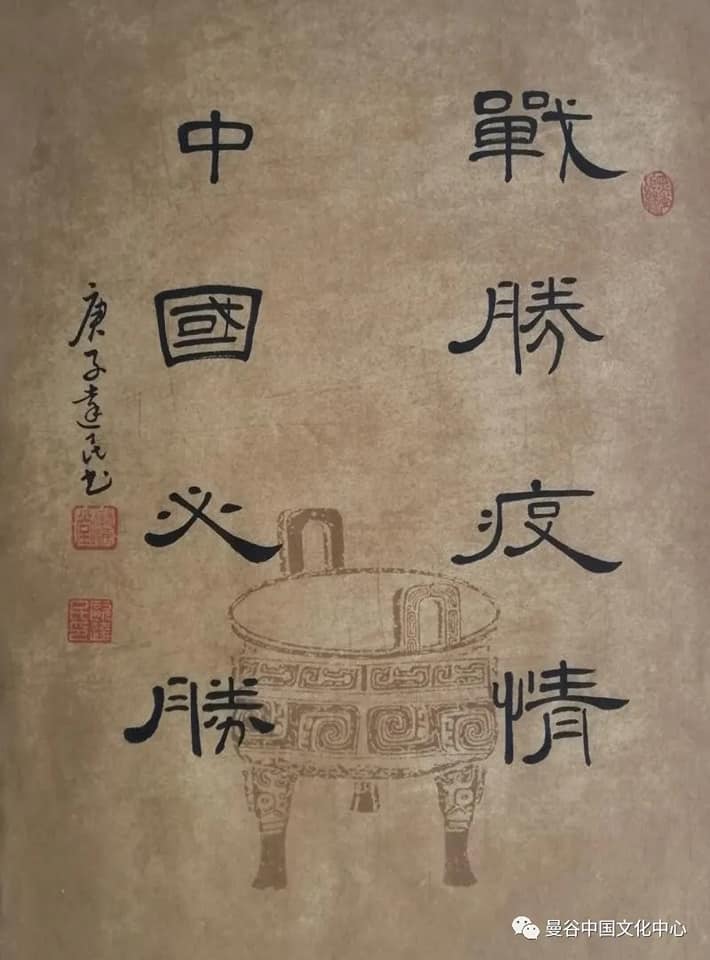 戰勝疫情
中國必勝
庚子達民書
曼谷中国文化中心